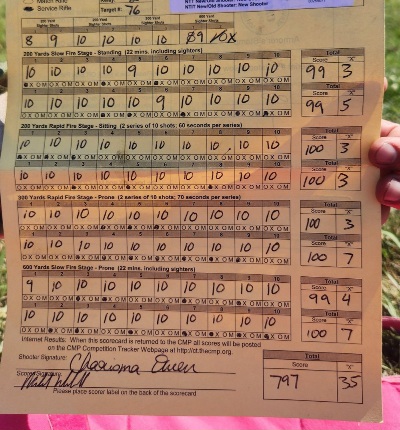 Service Rifle
Target #: 76
NTIT New/Old Shooter: New Shooter
8 9 10 10 10 10 89 10x
200 Yards Slow Fire Stage - Standing (22 mins. including sighters)
Total
1 2 3 4 5 6 7 8 9 10 Score "X"
10 10 10 10 9 10 10 10 10 10 99 3
X O M X O M X O M X O M X O M X O M X O M X O M X O M X O M
10 10 10 10 10 9 10 10 10 10 99 5
200 Yards Rapid Fire Stage - Sitting (2 series of 10 shots; 60 seconds per series)
Total
10 10 10 10 10 10 10 10 10 10 100 3
10 10 10 10 10 10 10 10 10 10 100 3
300 Yards Rapid Fire Stage - Prone (2 series of 10 shots; 70 seconds per series)
Total
10 10 10 10 10 10 10 10 10 10 100 3
10 10 10 10 10 10 10 10 10 10 100 7
600 Yards Slow Fire Stage - Prone (22 mins. including sighters)
Total
9 10 10 10 10 10 10 10 10 10 99 4
10 10 10 10 10 10 10 10 10 10 100 7
Internet Results: When this scorecard is returned to the CMP all scores will be posted
on the CMP Competition Tracker Webpage at http://ct.thecmp.org.
Shooter Signature:
Total
Score "X"
797 35
Scorer Signature:
Please place scorer label on the back of the scorecard